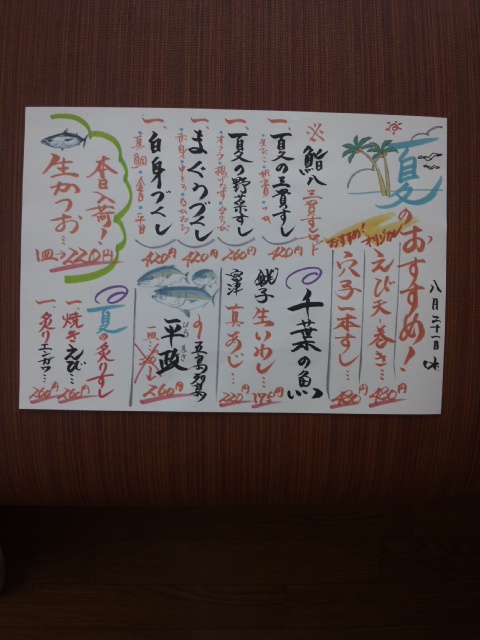 夏のおすすめ!
八月二十一日
オリジナル
えび天巻き… 480円
おすすめ!
穴子一本すし… 480円
※鮨八三貫すしセット
一、夏の三貫すし 420円
一、夏の野菜すし 260円
一、まぐろづくし 420円
一、白身づくし 420円
本日入荷!
生かつお…
一皿→220円
千葉の魚
銚子
生いわし…
富津
真あじ… 220円
五島列島
平政
ひらまさ
260円
夏の炙りすし
一、焼きえび… 260円
一、炙りエンガワ… 260円